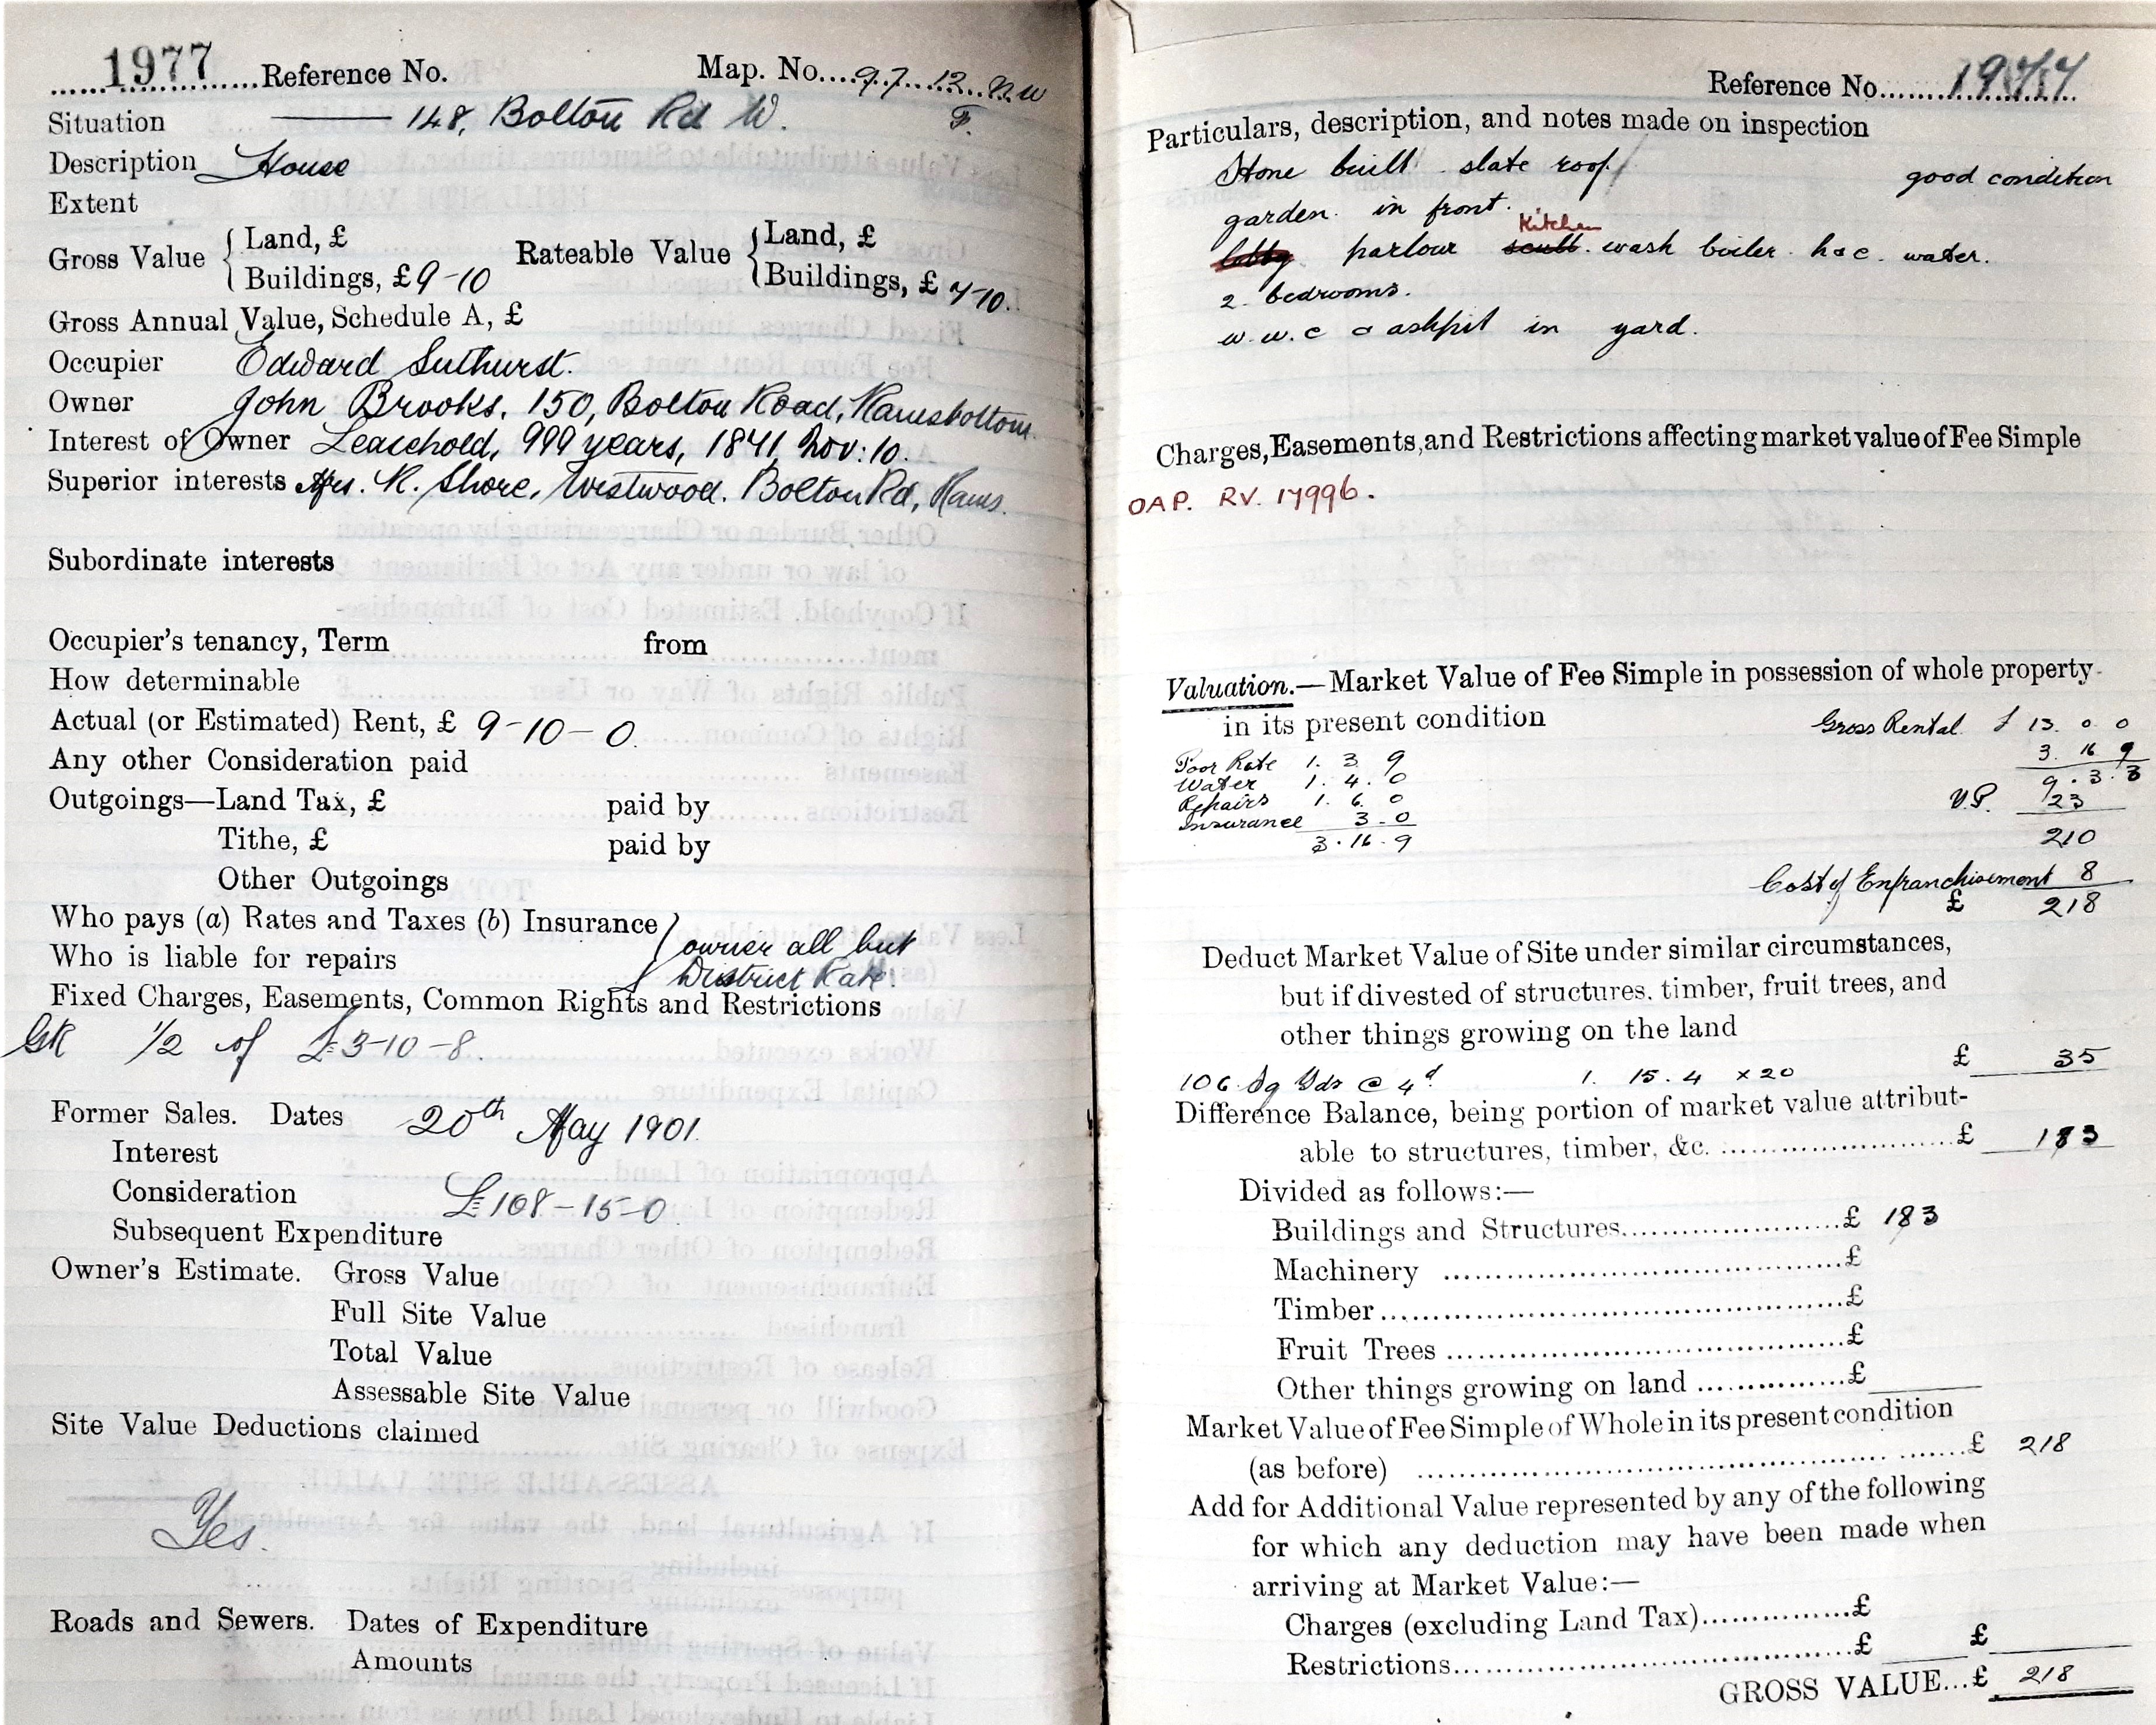 1977 Reference No. Map. No. 97. 12. NW
Situation 148, Bolton Rd W. F.
Description House
Extent
Gross Value { Land, £ Rateable Value { Land, £
Buildings, £ 9-10 Buildings, £ 7-10.
Gross Annual Value, Schedule A, £
Occupier Edward Suthurst.
Owner John Brooks, 150, Bolton Road, Ramsbottom
Interest of Owner Leasehold, 999 years, 1841, Nov: 10.
Superior interests Mrs. R. Shore, Westwood. Bolton Rd, Rams.
Subordinate interests
Occupier's tenancy, Term from
How determinable
Actual (or Estimated) Rent, £ 9-10-0.
Any other Consideration paid
Outgoings—Land Tax, £ paid by
Tithe, £ paid by
Other Outgoings
Who pays (a) Rates and Taxes (b) Insurance } owner all but
Who is liable for repairs District Rate.
Fixed Charges, Easements, Common Rights and Restrictions
GR 1/2 of £3-10-8.
Former Sales. Dates 20th May 1901.
Interest
Consideration £108-15-0.
Subsequent Expenditure
Owner's Estimate. Gross Value
Full Site Value
Total Value
Assessable Site Value
Site Value Deductions claimed
Yes.
Roads and Sewers. Dates of Expenditure
Amounts
Reference No. 1977
Particulars, description, and notes made on inspection
Stone built slate roof good condition
garden in front.
Kitchen
lobby parlour scull. wash boiler. h & c. water.
2. bedrooms.
w.w.c & ashpit in yard.
Charges, Easements, and Restrictions affecting market value of Fee Simple
OAP. RV. 17996.
Valuation.—Market Value of Fee Simple in possession of whole property
in its present condition Gross Rental £ 13. 0. 0
3. 16 9
Poor Rate 1. 3. 9 9. 3. 3
Water 1. 4. 0 Y.P. 23
Repairs 1. 6. 0
Insurance 3-0 210
3. 16. 9
Cost of Enfranchisement 8
£ 218
Deduct Market Value of Site under similar circumstances,
but if divested of structures, timber, fruit trees, and
other things growing on the land
106 Sq Yds @ 4d 1. 15. 4 x 20 £ 35
Difference Balance, being portion of market value attribut-
able to structures, timber, &c. £ 183
Divided as follows:—
Buildings and Structures £ 183
Machinery £
Timber £
Fruit Trees £
Other things growing on land £
Market Value of Fee Simple of Whole in its present condition
(as before) £ 218
Add for Additional Value represented by any of the following
for which any deduction may have been made when
arriving at Market Value:—
Charges (excluding Land Tax) £
Restrictions £ £
GROSS VALUE...£ 218